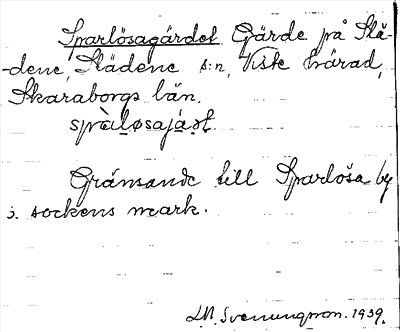 Sparlösagärdet Gärde på Slä-
-dene, Slädene s:n, Viste härad,
Skaraborgs län.
spàl̥øsajáṣt
Gränsande till Sparlösa by
i sockens mark.
Svenungsson. 1939.